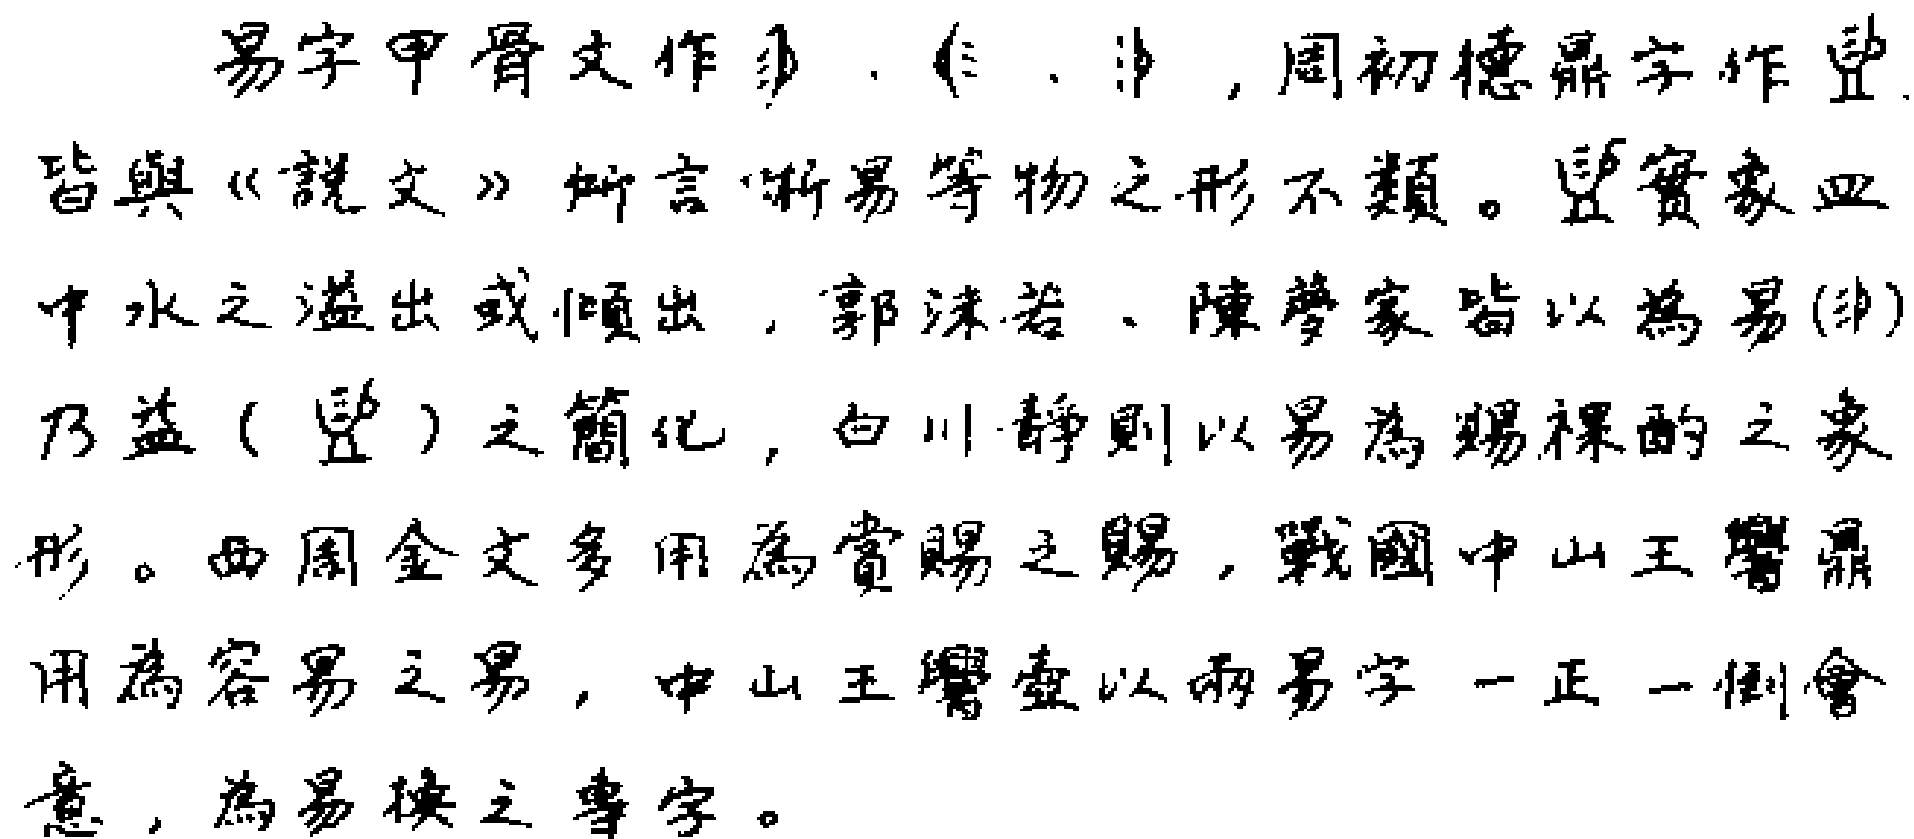 易字甲骨文作、、，周初德鼎字作，
皆與《說文》所言蜥易等物之形不類。實象皿
中水之溢出或傾出，郭沫若、陳夢家皆以為易（）
乃益（）之簡化，白川靜則以易為賜祼酌之象
形。西周金文多用為賞賜之賜，戰國中山王鼎
用為容易之易，中山王壺以兩易字一正一倒會
意，為易換之專字。